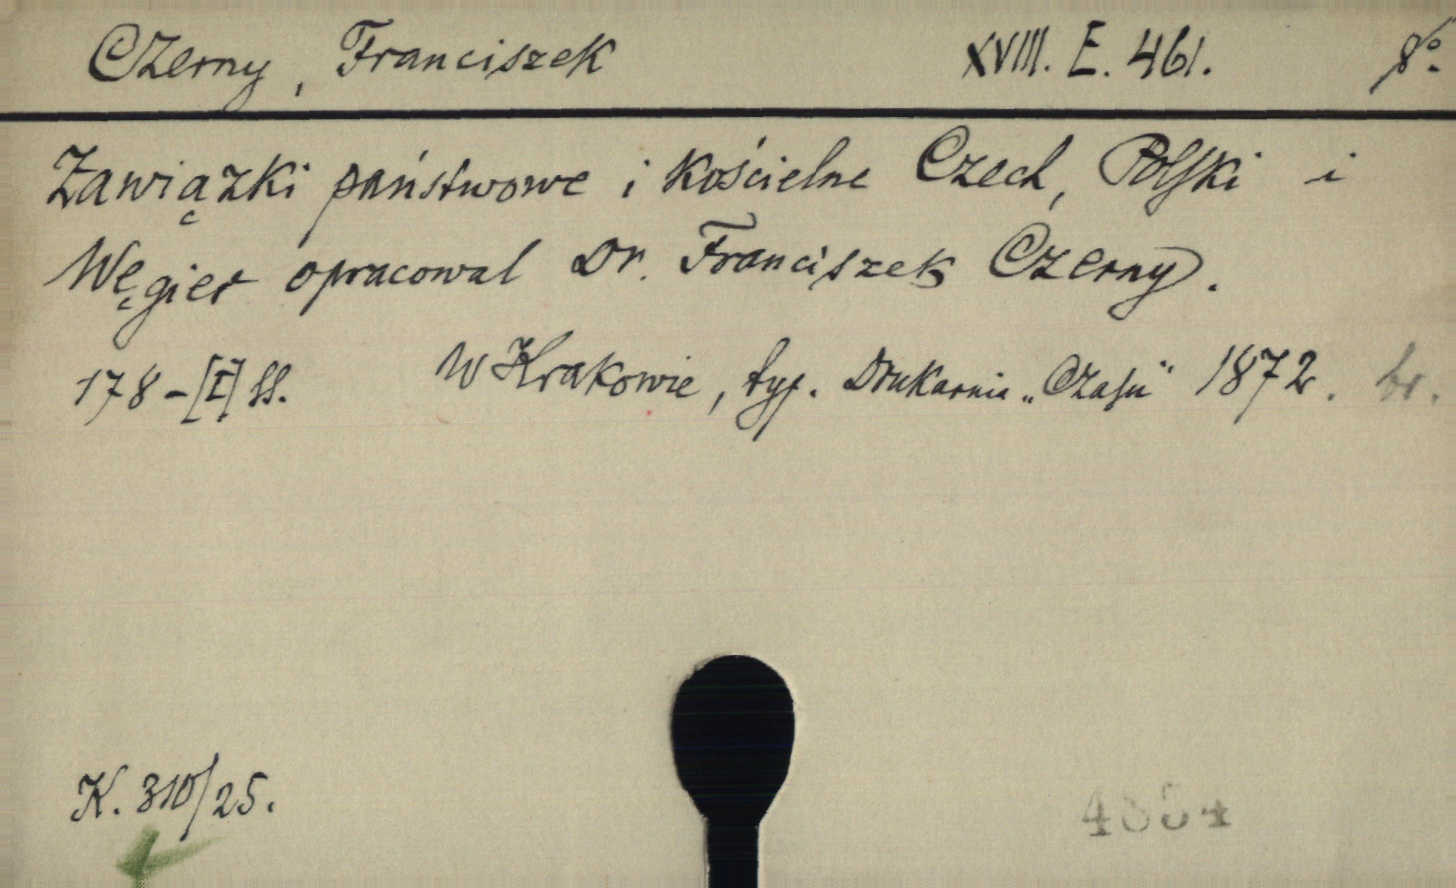 Czerny, Franciszek XVIII. E. 461. 8°.
Zawiązki państwowe i kościelne Czech, Polski i
Węgier opracowal Dr. Franciszek Czerny.
178-[I] SS. W Krakowie, typ. Drukarnia „Czasu" 1872. br.
K. 310/25.